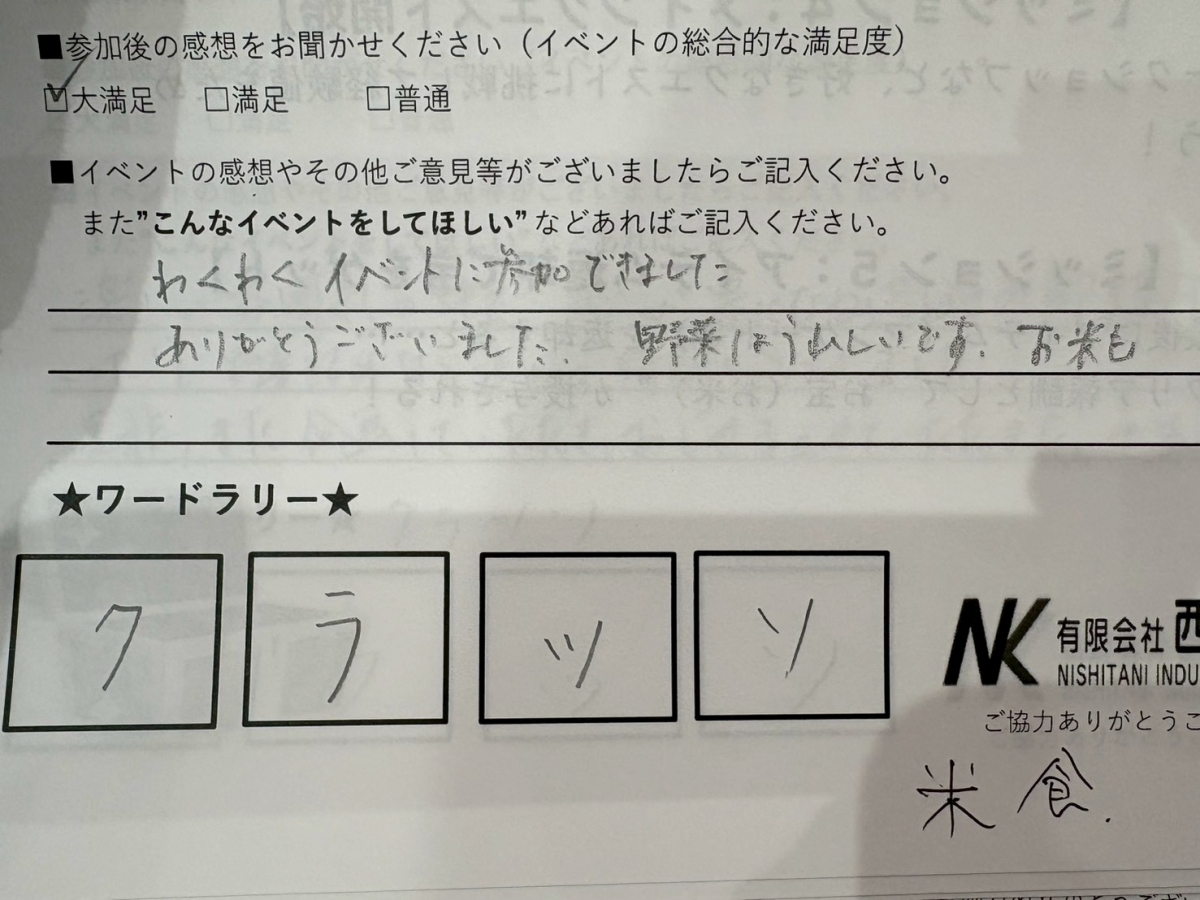 ■参加後の感想をお聞かせください（イベントの総合的な満足度）
☑大満足 □満足 □普通
■イベントの感想やその他ご意見等がございましたらご記入ください。
また”こんなイベントをしてほしい”などあればご記入ください。
わくわくイベントに参加できました
ありがとうございました. 野菜はうれしいです. お米も
★ワードラリー★
ク ラ ッ ソ
NK 有限会社 西
NISHITANI INDU
ご協力ありがとうご
米 食.